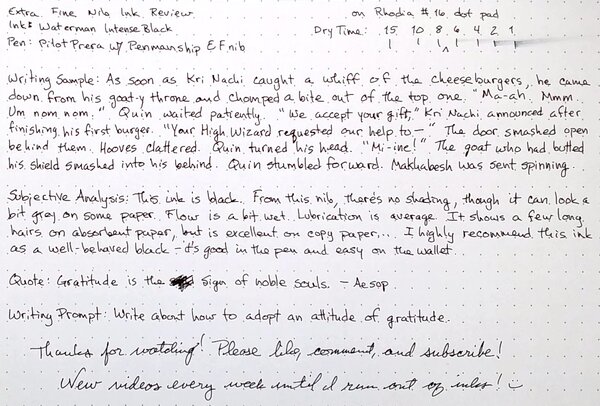 Extra Fine Nib Ink Review on Rhodia #16 dot pad
Ink: Waterman Intense Black Dry Time: 15 10 8 6 4 2 1
Pen: Pilot Prera w/ Penmanship EF nib
Writing Sample: As soon as Kri Nachi caught a whiff of the cheeseburgers, he came
down from his goat-y throne and chomped a bite out of the top one. "Ma-ah. Mmm.
Um nom nom." Quin waited patiently. "We accept your gift," Kri Nachi announced after
finishing his first burger. "Your High Wizard requested our help to—" The door smashed open
behind them. Hooves clattered. Quin turned his head. "Mi-ine!" The goat who had butted
his shield smashed into his behind. Quin stumbled forward. Makhabesh was sent spinning.
Subjective Analysis: This ink is black. From this nib, there's no shading, though it can look a
bit grey on some paper. Flow is a bit wet. Lubrication is average. It shows a few long
hairs on absorbent paper, but is excellent on copy paper... I highly recommend this ink
as a well-behaved black - it's good in the pen and easy on the wallet.
Quote: Gratitude is the sign of noble souls. - Aesop
Writing Prompt: Write about how to adopt an attitude of gratitude.
Thanks for watching! Please like, comment, and subscribe!
New videos every week until I run out of inks! :)